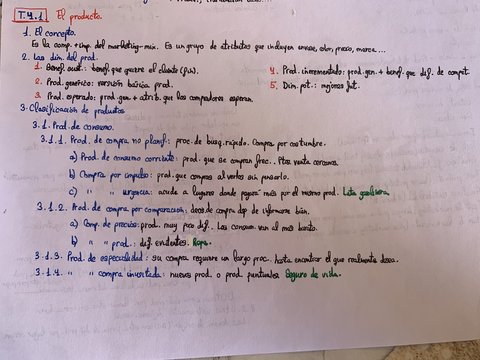 T.4.1 El producto.
1. El concepto.
Es la comp. + imp. del marketing-mix. Es un grupo de atributos que incluyen envase, olor, precio, marca...
2. Las dim. del prod.
1. Benef. sust.: benef. que quiere el cliente (fin).
2. Prod. genérico: versión básica prod.
3. Prod. esperado: prod. gen. + atrib. que los compradores esperan.
4. Prod. incrementado: prod. gen. + benef. que dif. de compet.
5. Dim. pot.: mejoras fut.
3. Clasificación de productos
3.1. Prod. de consumo.
3.1.1. Prod. de compra no planif.: proc. de busq. rápido. Compra por costumbre.
a) Prod. de consumo corriente: prod. que se compran frec.. Ptos venta cercanos.
b) Compra por impulso: prod. que compras al verlos sin pensarlo.
c) " " urgencia: acude a lugares donde pagará más por el mismo prod. Lata gasolinera.
3.1.2. Prod. de compra por comparación: decide compra dsp. de informarse bien.
a) Comp. de precios: prod. muy poco dif.. Los consum. van al más barato.
b) " " prod.: dif. evidentes. Ropa.
3.1.3. Prod. de especialidad: su compra requiere un largo proc. hasta encontrar el que realmente desea.
3.1.4. " " compra inventada: nuevos prod. o prod. puntuales. Seguro de vida.